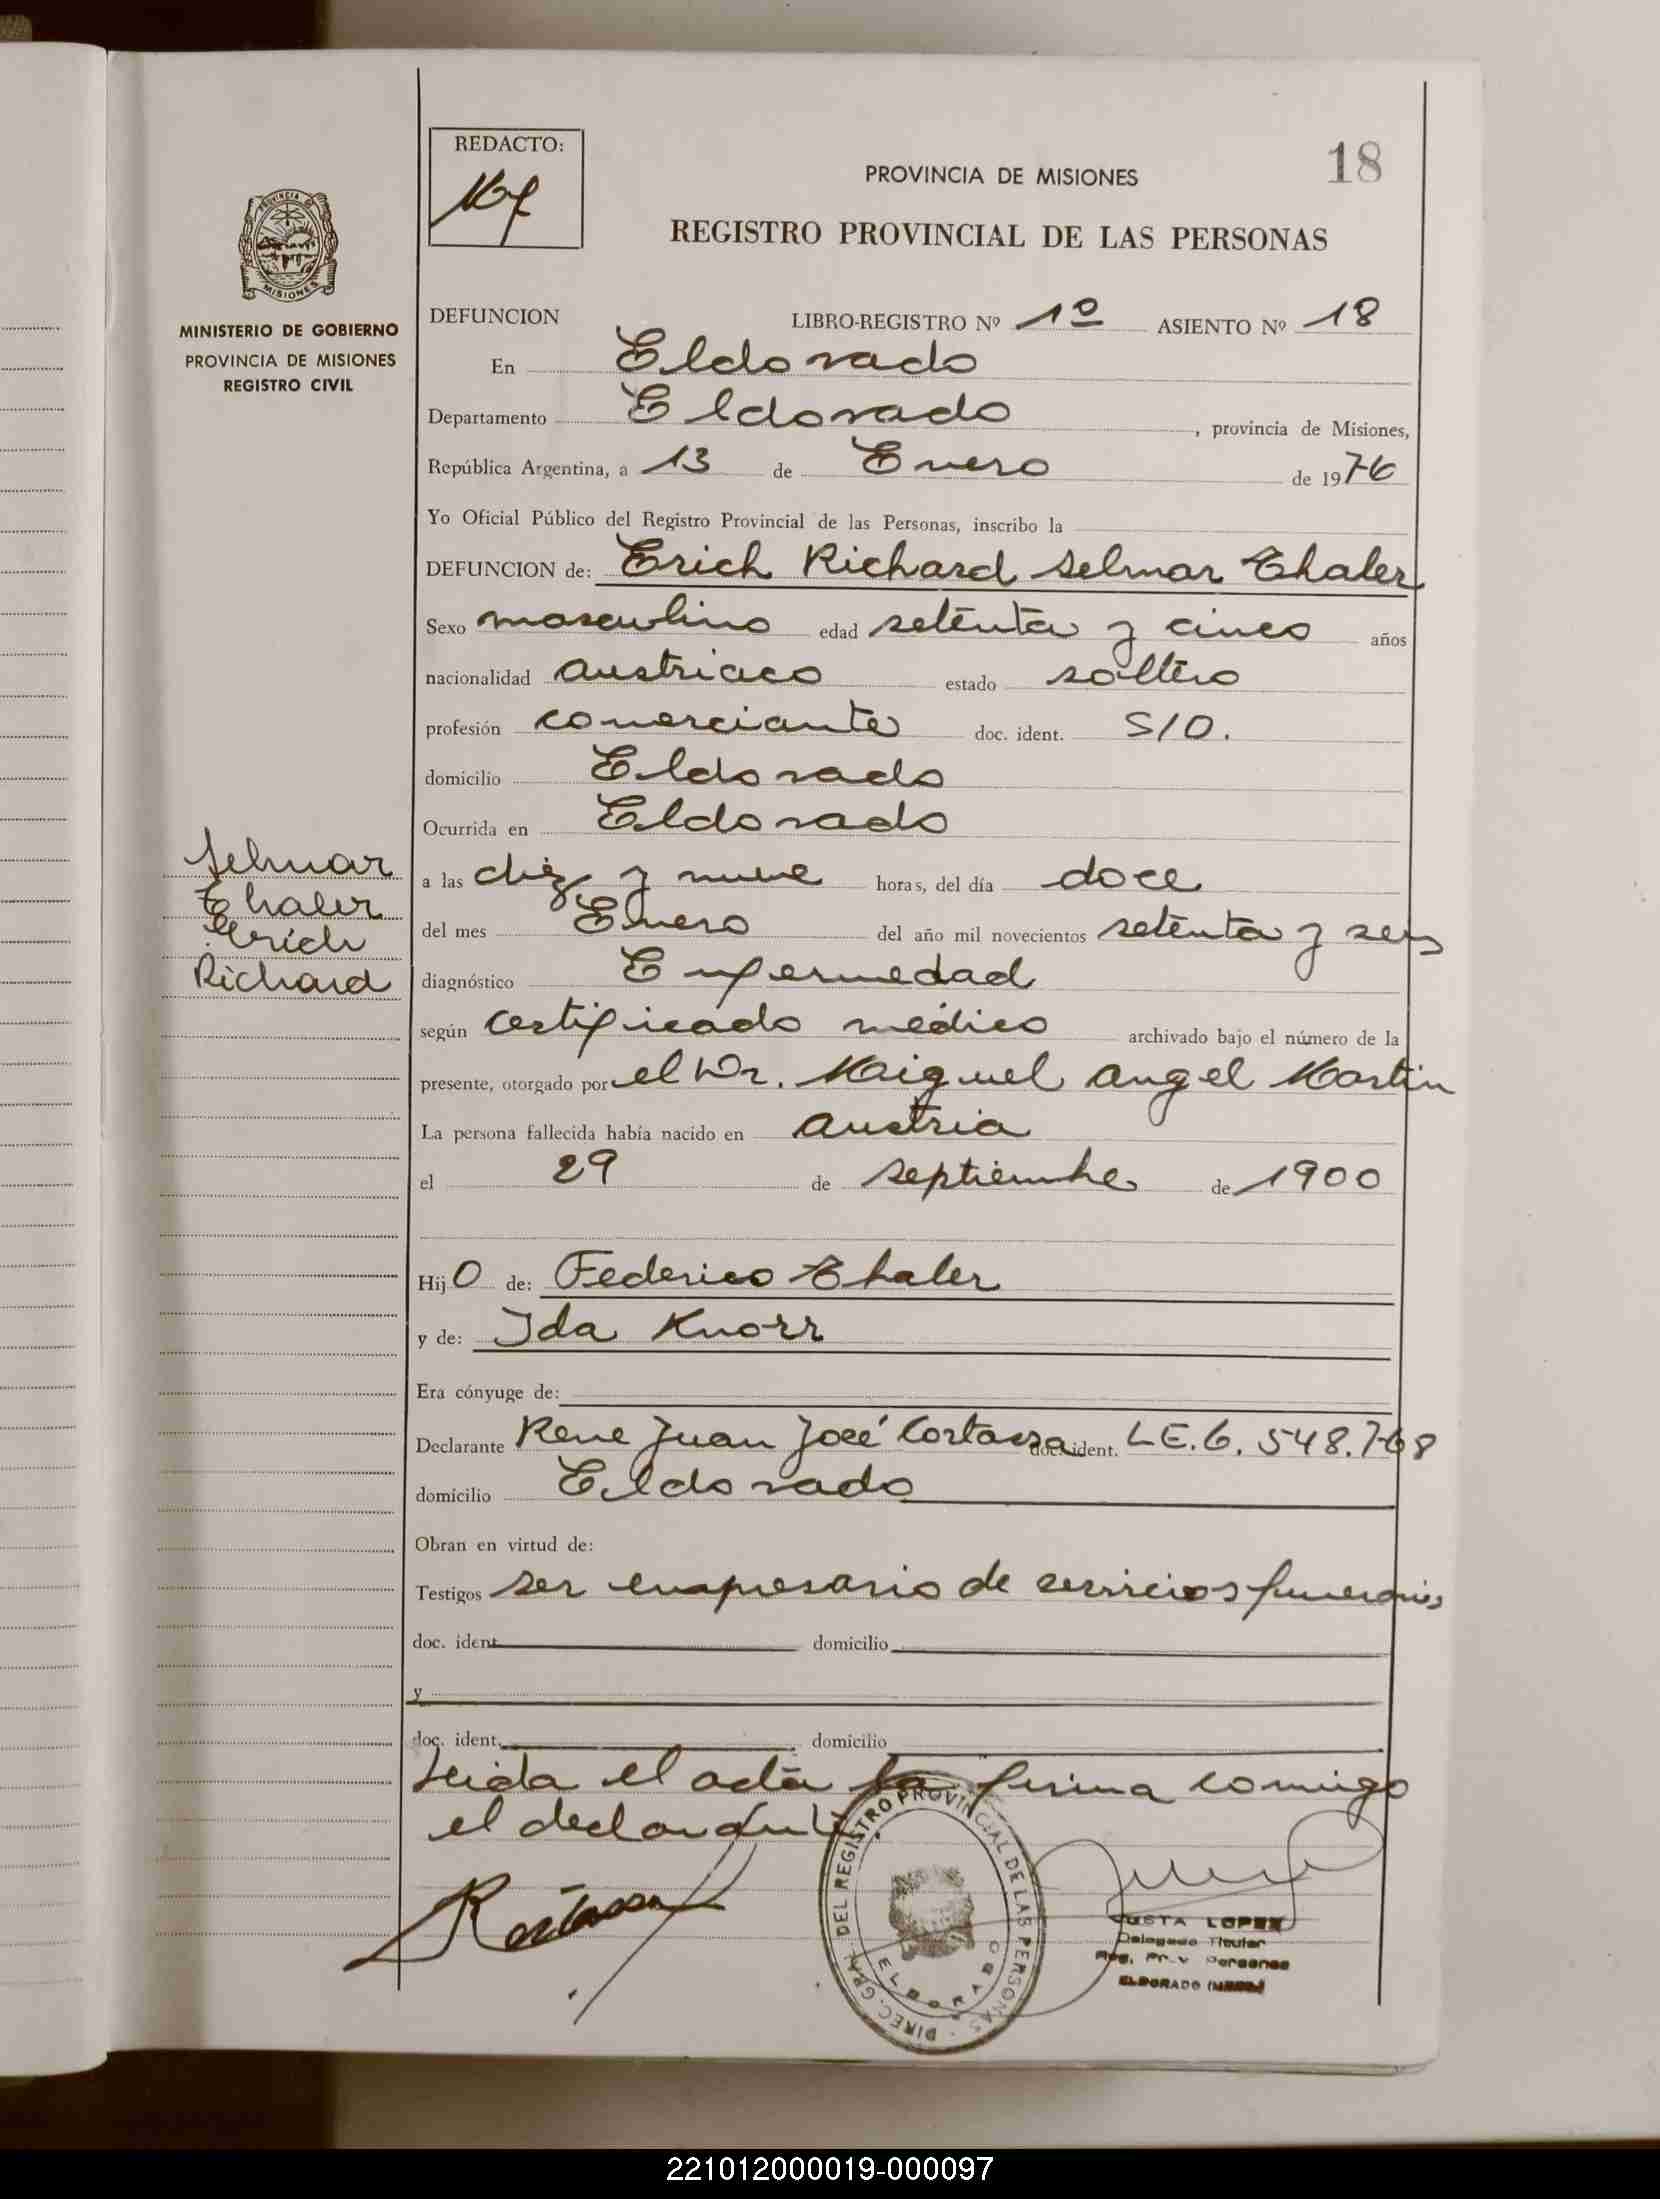 REDACTO:
18
PROVINCIA DE MISIONES
REGISTRO PROVINCIAL DE LAS PERSONAS
PROVINCIA DE
MISIONES
MINISTERIO DE GOBIERNO
PROVINCIA DE MISIONES
REGISTRO CIVIL
DEFUNCION LIBRO-REGISTRO Nº 1º ASIENTO Nº 18
En Eldorado
Departamento Eldorado, provincia de Misiones,
República Argentina, a 13 de Enero de 1976
Yo Oficial Público del Registro Provincial de las Personas, inscribo la
DEFUNCION de: Erich Richard Selmar Thaler
Sexo masculino edad setenta y cinco años
nacionalidad austriaco estado soltero
profesión comerciante doc. ident. S/D.
domicilio Eldorado
Ocurrida en Eldorado
a las diez y nueve horas, del día doce
del mes Enero del año mil novecientos setenta y seis
diagnóstico Enfermedad
según certificado médico archivado bajo el número de la
presente, otorgado por el Dr. Miguel Angel Martin
La persona fallecida había nacido en Austria
el 29 de septiembre de 1900
Hijo de: Federico Thaler
y de: Ida Knorr
Era cónyuge de:
Declarante Rene Juan José Cortassa doc. ident. L.E. 6.548.768
domicilio Eldorado
Obran en virtud de:
Testigos ser empresario de servicios funerarios
doc. ident. domicilio
y
doc. ident. domicilio
Leida el acta la firma comigo
el declarante
Selmar
Thaler
Erich
Richard
DIREC. GRAL. DEL REGISTRO PROVINCIAL DE LAS PERSONAS
ELDORADO
LOPEZ
Delegado Titular
Reg. Prov Personas
ELDORADO
221012000019-000097